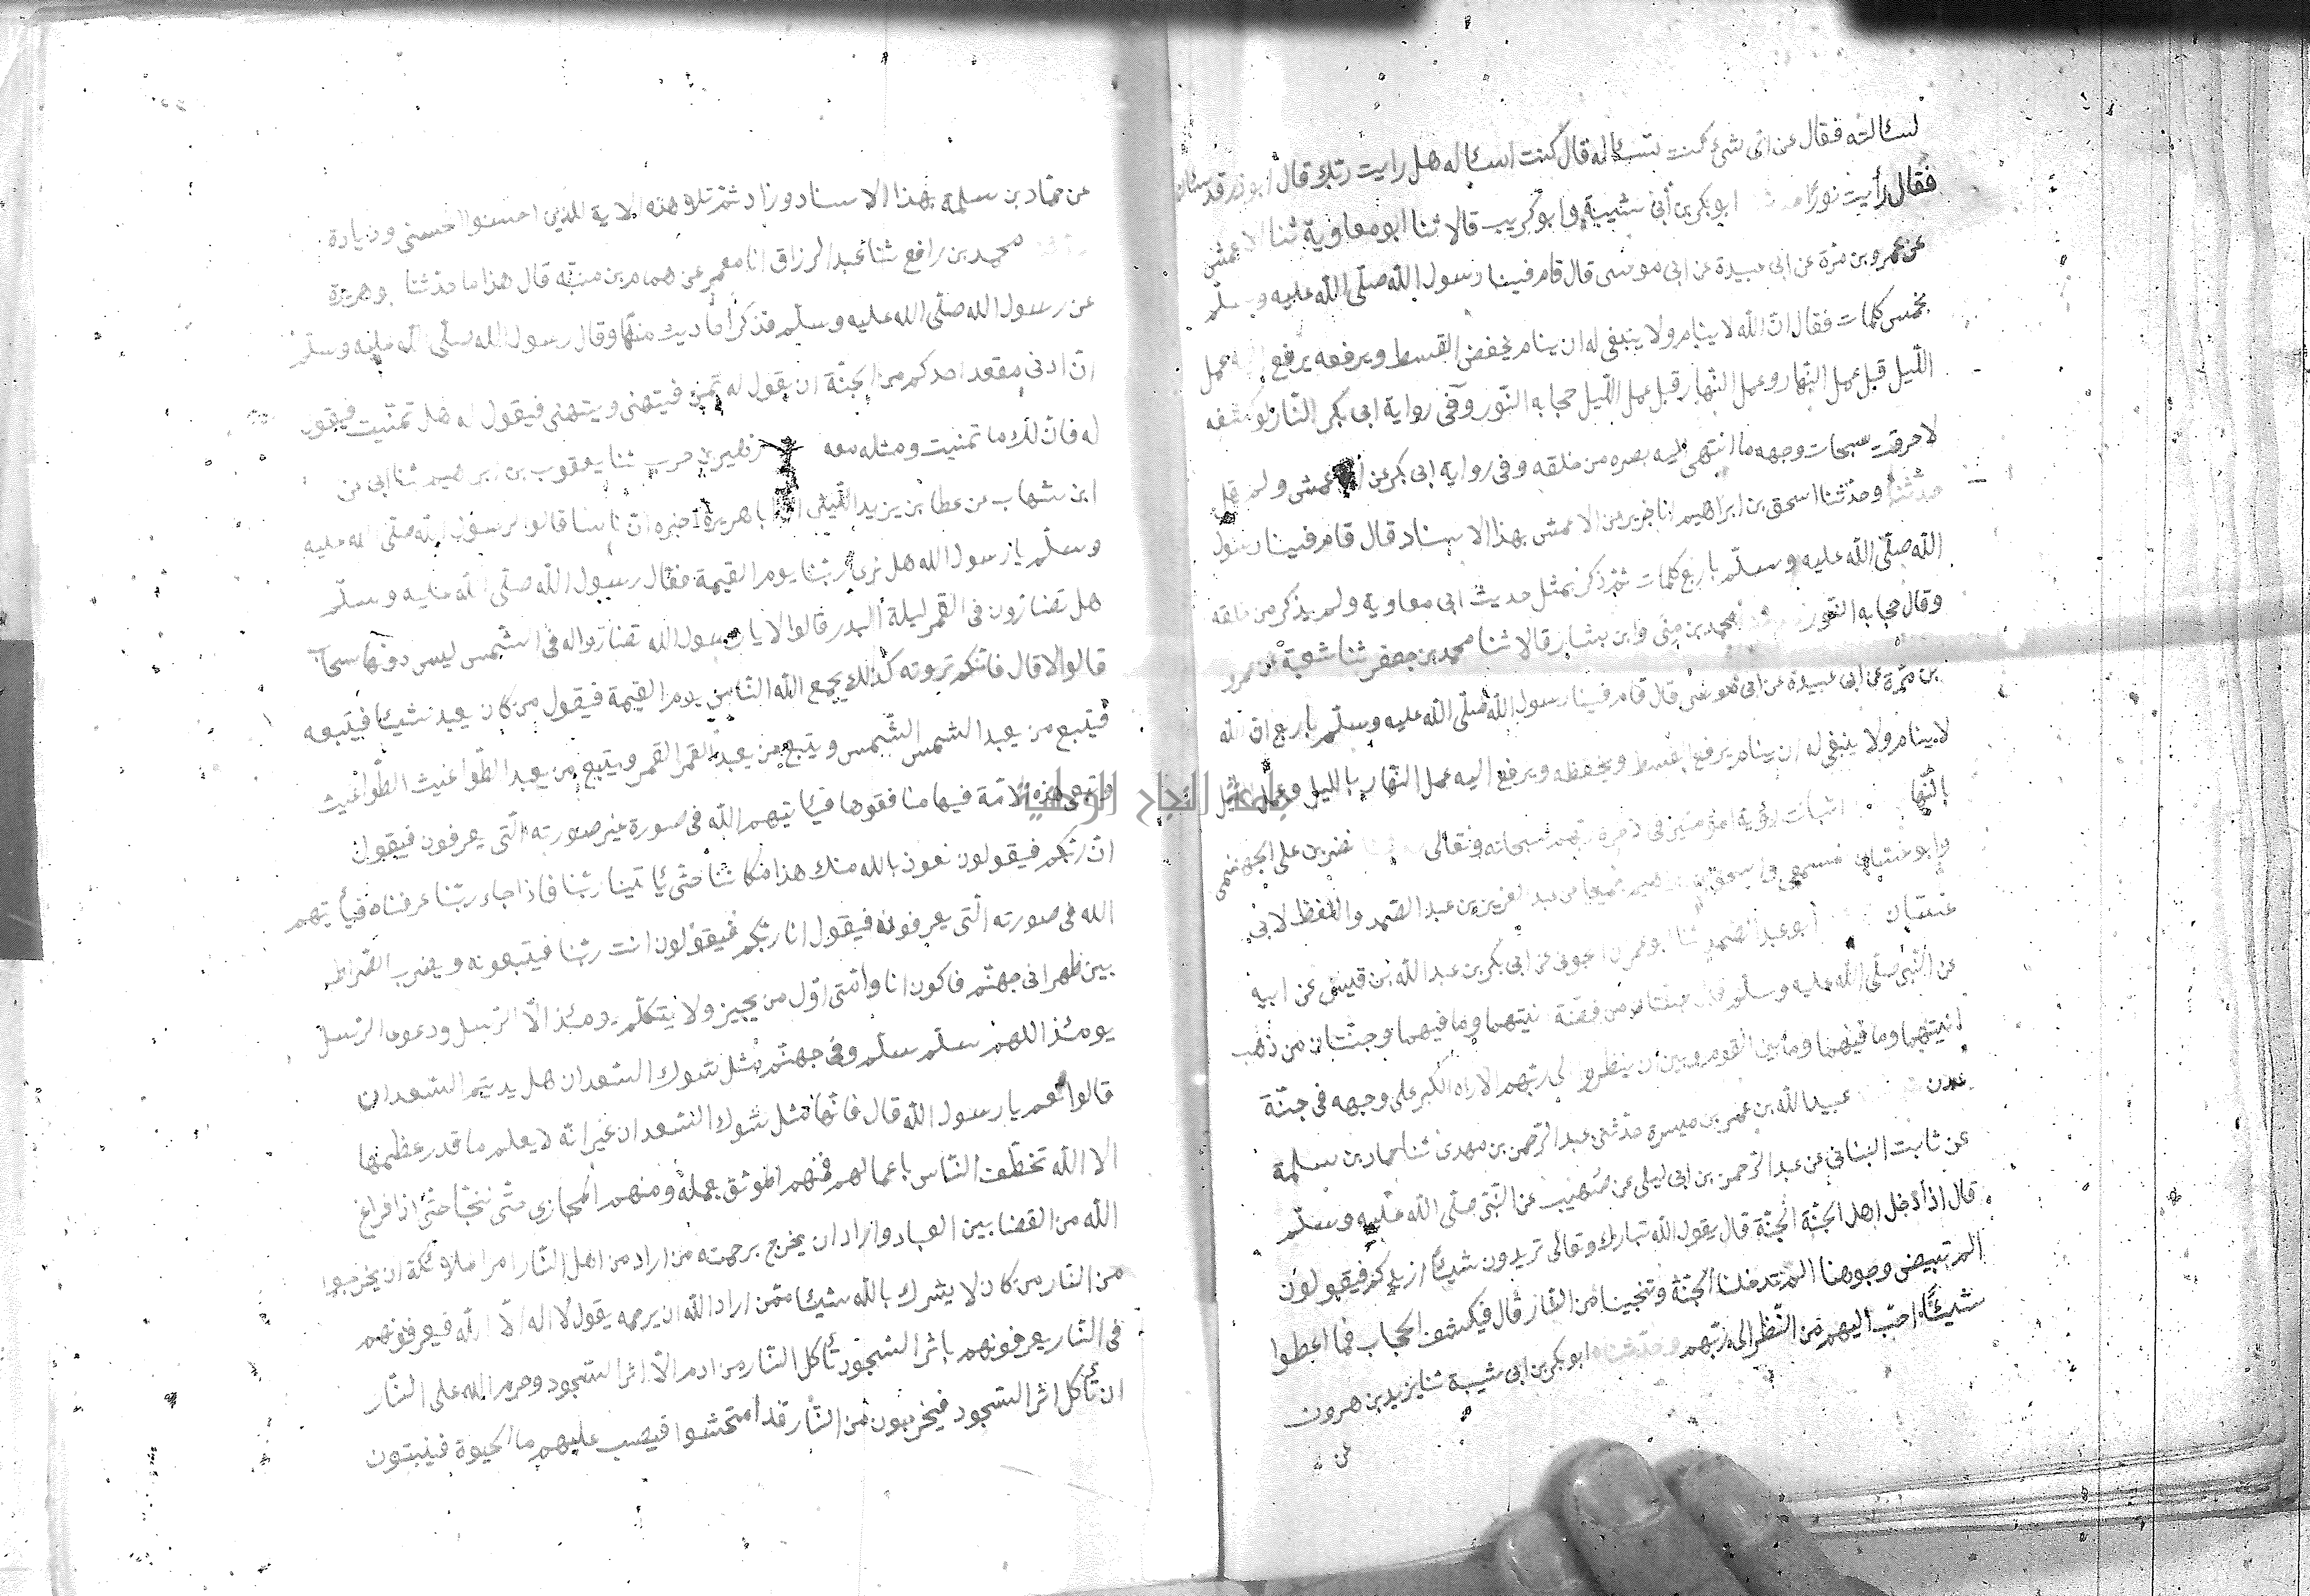 لسئالته فقال عن اى شئ كنت تسئاله قال كنت اسئاله هل رايت ربك قال ابوذر قد سئالته
فقال رأيت نورًا ابو بكر بن أبى شيبة وابو كريب قالا ثنا ابو معاوية ثنا الاعمش
عن عمرو بن مرة عن ابى عبيدة عن ابى موسى قال قام فينا رسول الله صلى الله عليه وسلم
بخمس كلمات فقال ان الله لا ينام ولا ينبغى له ان ينام يخفض القسط ويرفعه يرفع اليه عمل
الليل قبل عمل النهار وعمل النهار قبل عمل الليل حجابه النور وفى رواية ابى بكر النار لو كشفه
لاحرقت سبحات وجهه ما انتهى اليه بصره من خلقه وفى رواية ابى بكر عن الاعمش ولم يقل
حدثنا وحدثنا اسحق بن ابراهيم انا جرير عن الاعمش بهذا الاسناد قال قام فينا رسول
الله صلى الله عليه وسلم بأربع كلمات ثم ذكر بمثل حديث ابى معاوية ولم يذكر من خلقه
وقال حجابه النور محمد بن مثنى وابن بشار قالا ثنا محمد بن جعفر ثنا شعبة عن عمرو
بن مرة عن ابى عبيدة عن ابى موسى قال قام فينا رسول الله صلى الله عليه وسلم باربع ان الله
لا ينام ولا ينبغى له ان ينام يرفع القسط ويخفظه ويرفع اليه عمل النهار بالليل وعمل الليل
بالنهار اثبات رؤية المؤمنين فى الاخرة ربهم سبحانه وتعالى نصر بن على الجهضمى
وابو غسان المسمعى واسحق بن ابراهيم جميعا عن عبد العزيز بن عبد الصمد واللفظ لابى
غسان أبو عبد الصمد ثنا ابو عمران الجونى عن ابى بكر بن عبد الله بن قيس عن ابيه
عن النبى صلى الله عليه وسلم قال جنتان من فضة انيتهما وما فيهما وجنتان من ذهب
انيتهما وما فيهما وما بين القوم وبين ان ينظروا الى ربهم الا رداء الكبر على وجهه فى جنة
عدن عبيد الله بن عمر بن ميسرة حدثنى عبد الرحمن بن مهدى ثنا حماد بن سلمة
عن ثابت البنانى عن عبد الرحمن بن ابى ليلى عن صهيب عن النبى صلى الله عليه وسلم
قال اذا أدخل اهل الجنة الجنة قال يقول الله تبارك وتعالى تريدون شيئًا ازيدكم فيقولون
الم تبيض وجوهنا الم تدخلنا الجنة وتنجينا من النار قال فيكشف الحجاب فما اعطوا
شيئًا احب اليهم من النظر الى ربهم وحدثنا ابو بكر بن ابى شيبة ثنا يزيد بن هرون
عن
عن حماد بن سلمة بهذا الاسناد وزاد ثم تلا هذه الاية للذين احسنوا الحسنى وزيادة
محمد بن رافع ثنا عبد الرزاق انا معمر عن همام بن منبه قال هذا ما حدثنا بو هريرة
عن رسول الله صلى الله عليه وسلم فذكر أحاديث منها وقال رسول الله صلى الله عليه وسلم
ان ادنى مقعد احدكم من الجنة ان يقول له تمن فيتمنى ويتمنى فيقول له هل تمنيت فيقول
له فان لك ما تمنيت ومثله معه زهير بن حرب ثنا يعقوب بن ابرهيم ثنا ابى عن
ابن شهاب عن عطا بن يزيد الليثى ان ابا هريرة اخبره ان ناسا قالوا لرسول الله صلى الله عليه
وسلم يا رسول الله هل نرى ربنا يوم القيمة فقال رسول الله صلى الله عليه وسلم
هل تضارون فى القمر ليلة البدر قالوا لا يا رسول الله تضارواله فى الشمس ليس دونها سحاب
قالوا لا قال فانكم ترونه كذلك يجمع الله الناس يوم القيمة فيقول من كان يعبد شيئا فيتبعه
فيتبع من يعبد الشمس الشمس ويتبع من يعبد القمر القمر ويتبع من يعبد الطواغيث الطواغيث
وتبقى هذه الامة فيها منافقوها فيئاتيهم الله فى صورة غير صورته التى يعرفون فيقول
انا ربكم فيقولون نعوذ بالله منك هذا مكاننا حتى يأتينا ربنا فاذا جاء ربنا عرفناه فيأتيهم
الله فى صورته التى يعرفونه فيقول انا ربكم فيقولون انت ربنا فيتبعونه ويضرب الصراط
بين ظهرانى جهنم فاكون انا وامتى اول من يجيز ولا يتكلم يومئذ الا الرسل ودعوى الرسل
يومئذ اللهم سلم سلم وفى جهنم مثل شوك السعدان هل رايتم السعدان
قالوا نعم يا رسول الله قال فانها مثل شوك السعدان غير انه لا يعلم ما قدر عظمها
الا الله تخطف الناس باعمالهم فمنهم الموثق بعمله ومنهم المجازى حتى ينجا حتى اذا فراغ
الله من القضا بين العباد واراد ان يخرج برحمته من اراد من اهل النار امر الملائكة ان يخرجوا
من النار من كان لا يشرك بالله شيئا ممن اراد الله ان يرحمه يقول لا اله الا الله فيعرفونهم
فى النار يعرفونهم باثر السجود تأكل النار من ادم الا اثر السجود وحرم الله على النار
ان تأكل اثر السجود فيخرجون من النار قد امتحشوا فيصب عليهم ما الحيوة فينبتون
جامعة النجاح الوطنية